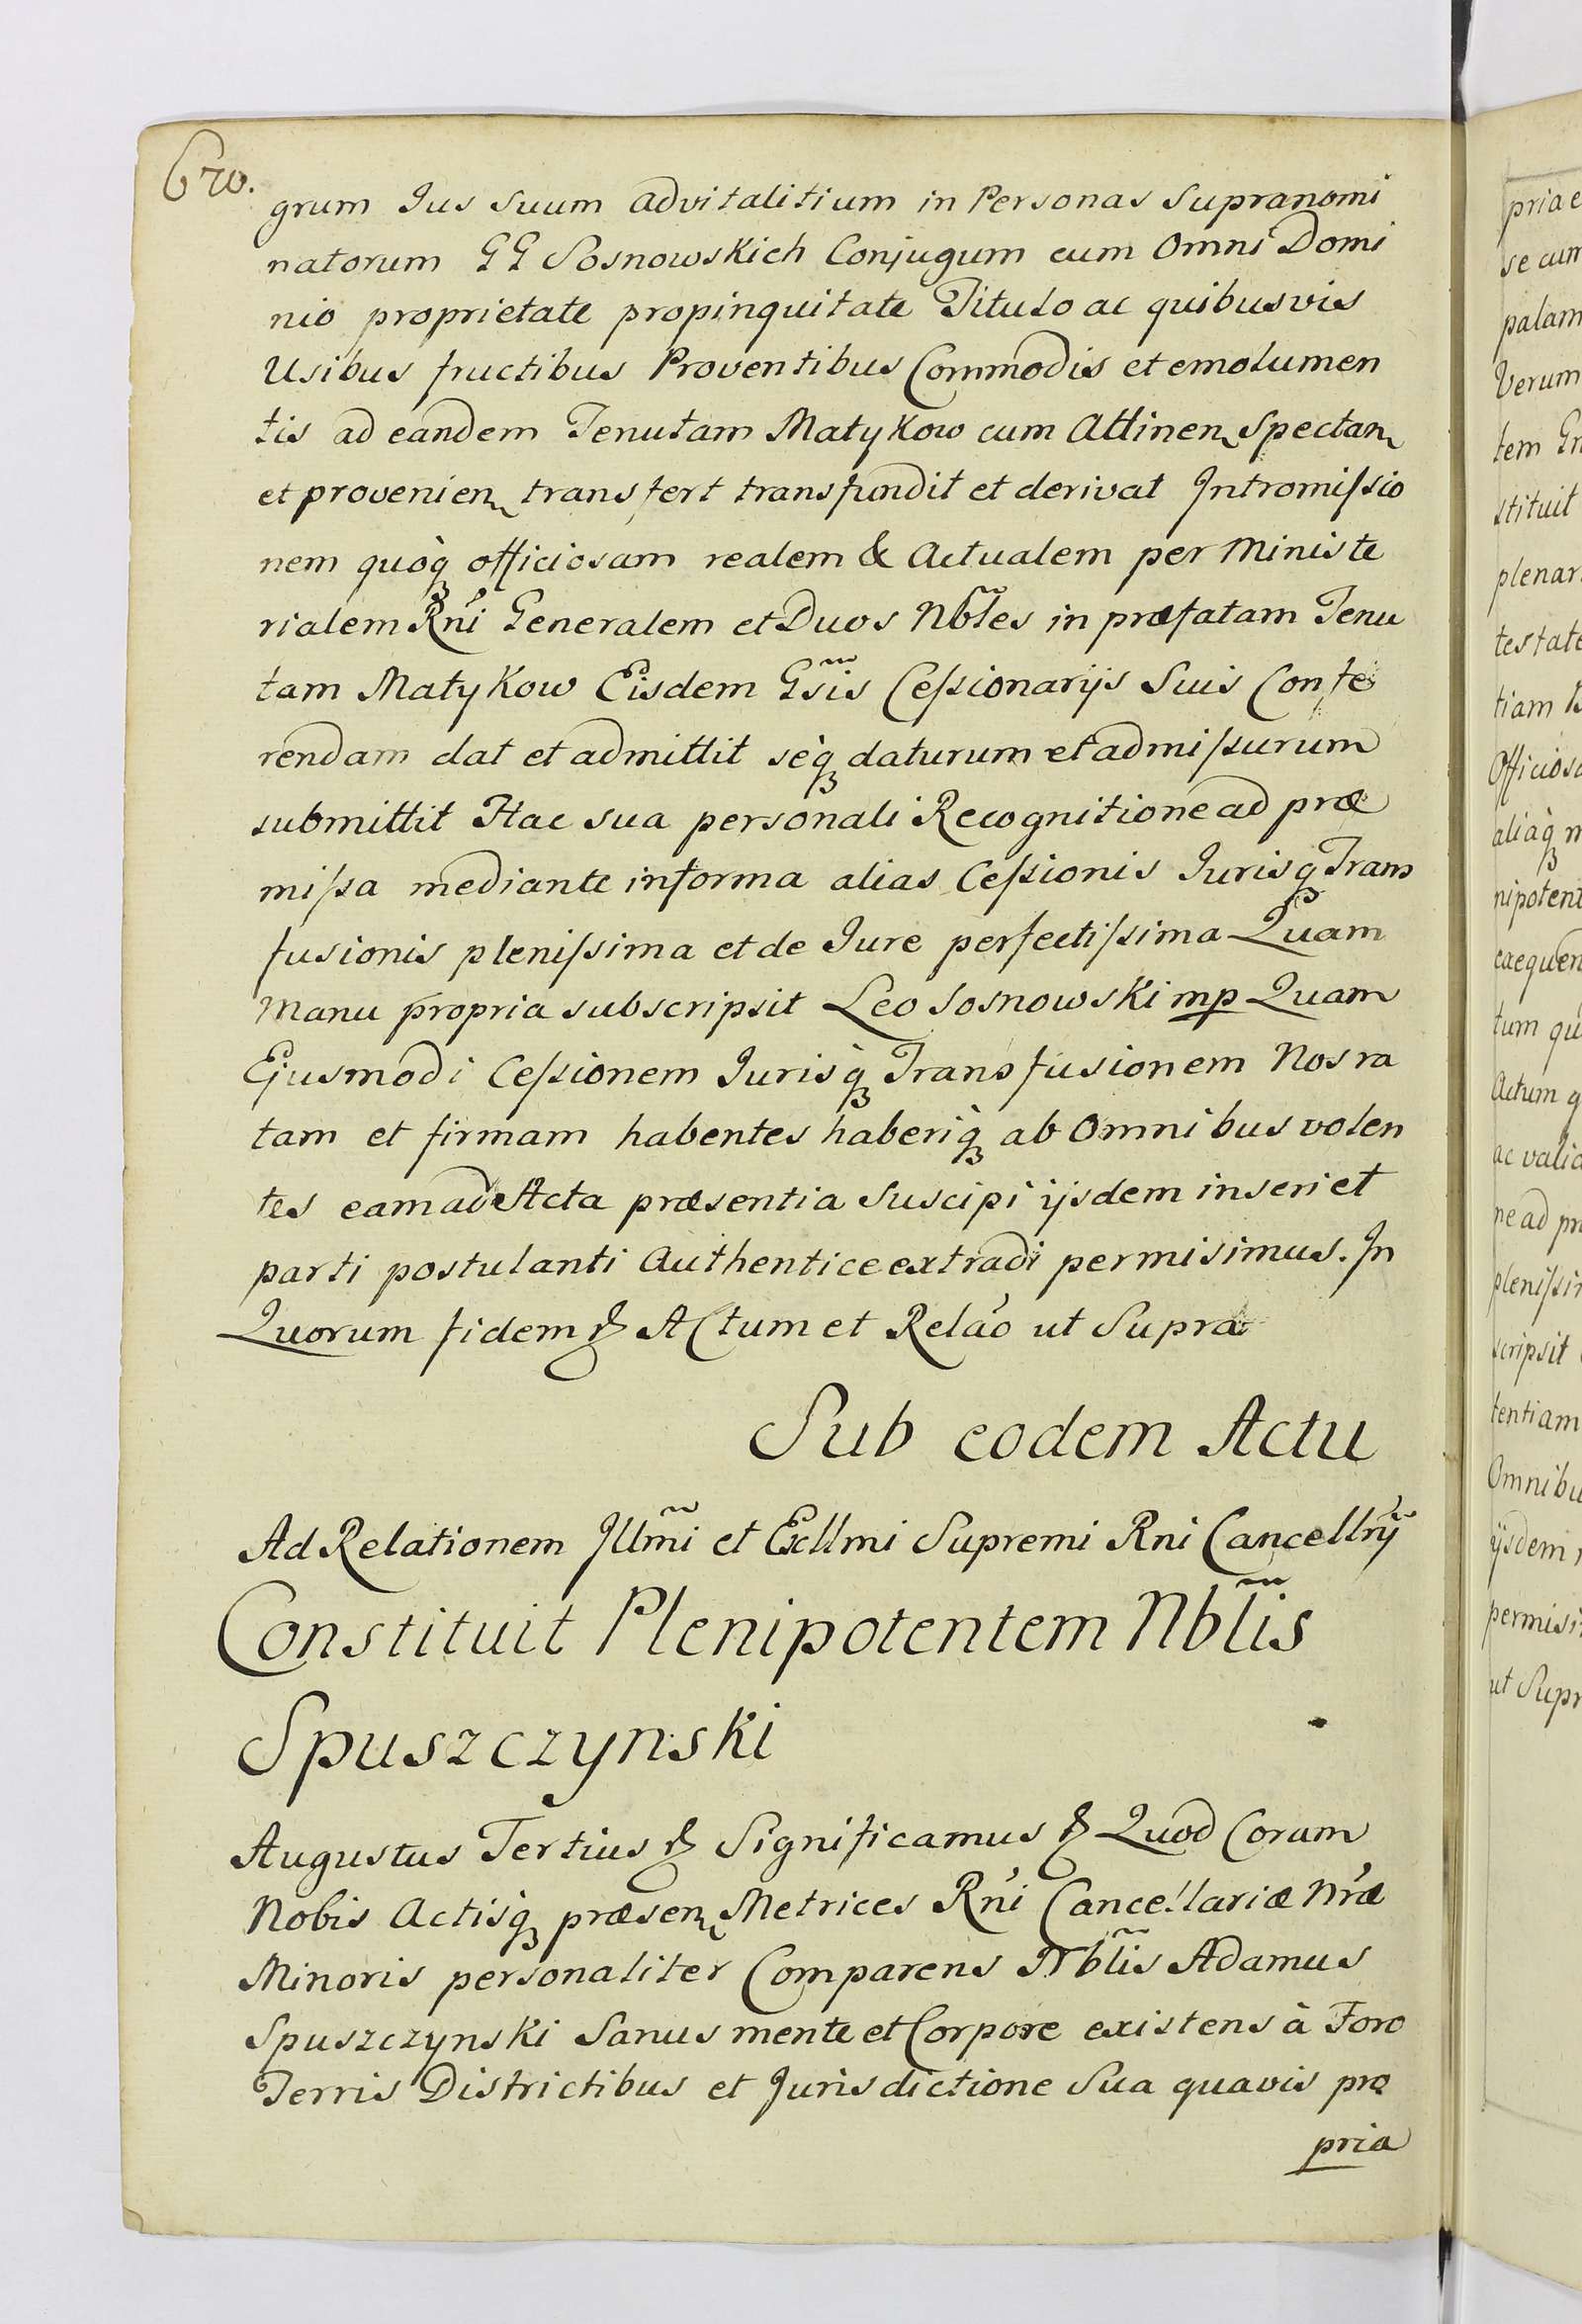 670.
grum Jus suum advitalitium in Personas Supranomi
natorum GG Sosnowskich Conjugum cum Omni Domi
nio proprietate propinquitate Titulo ac quibusvis
Usibus fructibus Proventibus Commodis et emolumen
tis ad eandem Tenutam Matykow cum Attinen Spectan
et provenien transfert transfundit et derivat Intromissio
nem quòq officiosam realem & Actualem per Ministe
rialem Rni Generalem et Duos Nbles in præfatam Tenu
tam Matykow Eisdem Gsis Cessionarijs Suis Confe
rendam dat et admittit sèq daturum et admissurum
submittit Hac sua personali Recognitione ad præ
missa mediante in forma alias Cessionis Jurisq Trans
fusionis plenissima et de Jure perfectissima Quam
Manu propria subscripsit Leo Sosnowski mp Quam
Ejusmodi Cessionem Jurisq Transfusionem Nos ra
tam et firmam habentes haberiq ab Omnibus volen
tes eam ad Acta præsentia Suscipi ijsdem inseri et
parti postulanti Authentice extradi permisimus. In
Quorum fidem & Actum et Relaó ut Supra
Sub eodem Actu
Ad Relationem Illmi et Excllmi Supremi Rni Cancellrij
Constituit Plenipotentem Nblis
Spuszczynski
Augustus Tertius & Significamus & Quod Coram
Nobis Actisq præsen Metrices Rni Cancellariæ Nræ
Minoris personaliter Comparens Nblis Adamus
Spuszczynski Sanus mente et Corpore existens à Foro
Terris Districtibus et Jurisdictione Sua quavis pro
pria
priae
se cum
palam
Verum
tem Gn
stituit
plenar
testate
tiam
Officiosa
aliàq m
nipotent
exequen
tum qu
Actum q
ac valid
ne ad pr
plenissi
scripsit
tentiam
Omnibu
ijsdem
permisi
ut Supr